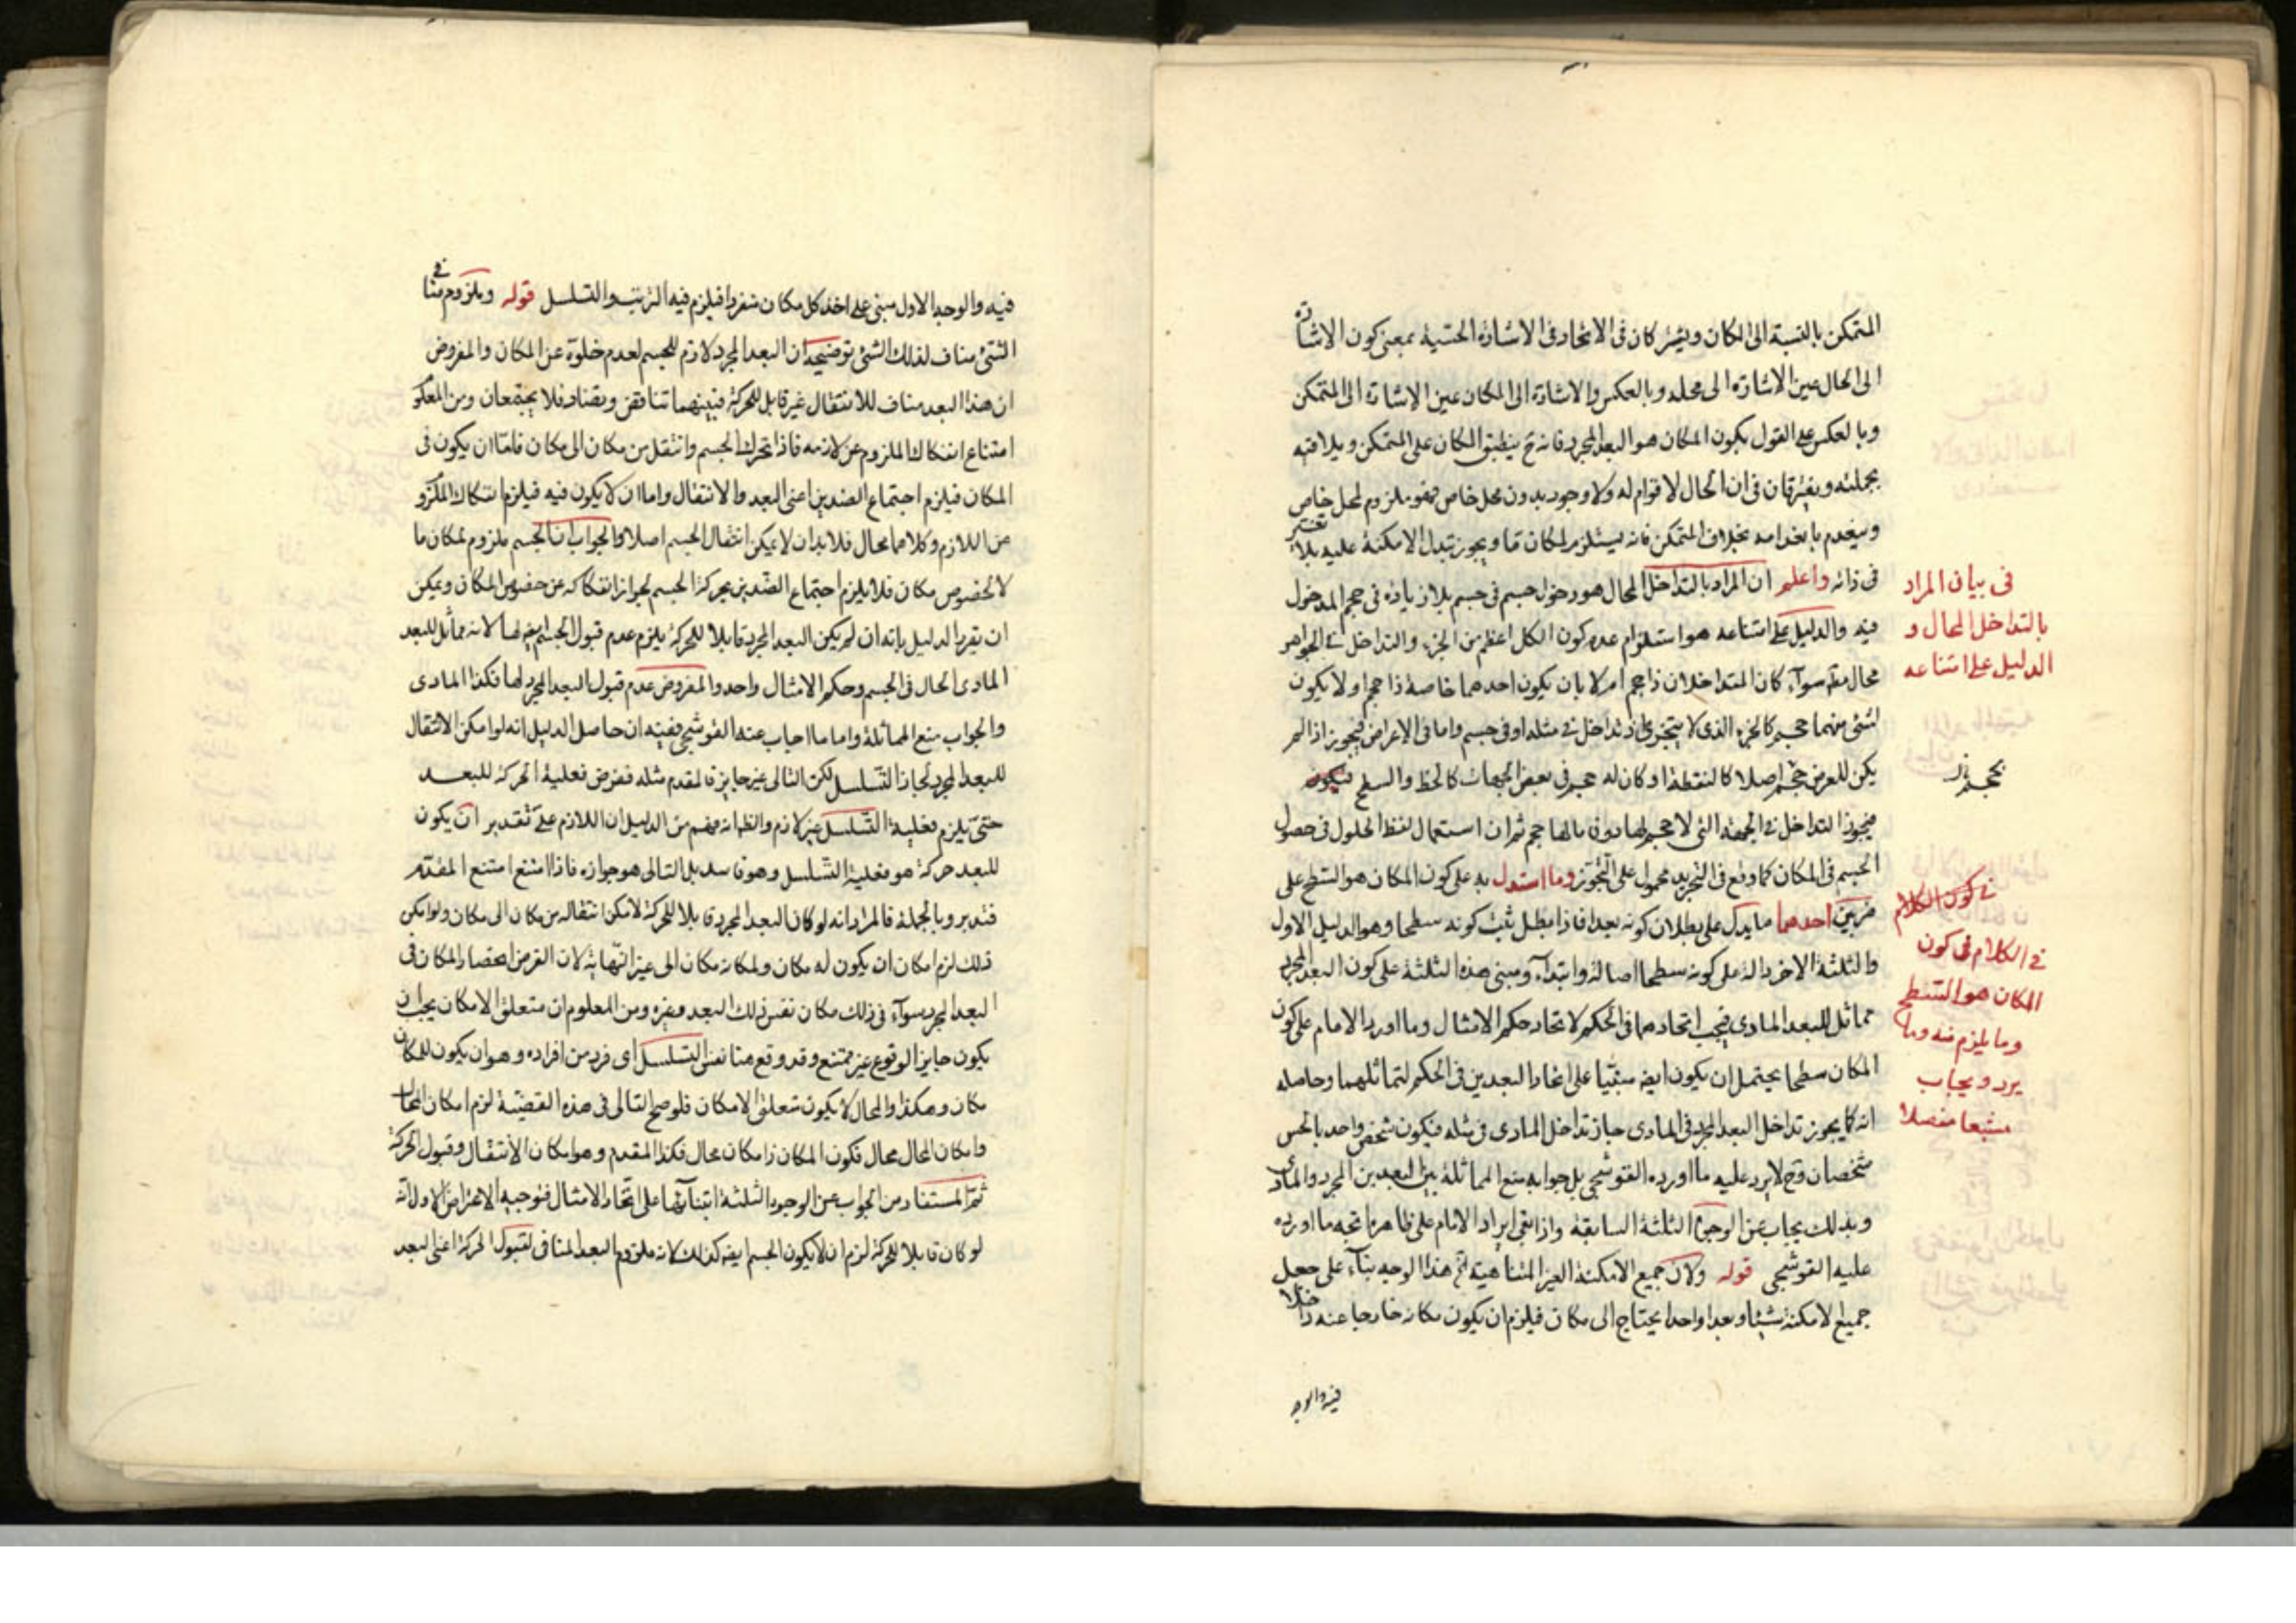 المتمكن بالنسبة الى المكان ويشتركان فى الاتحاد فى الاشارة الحسية بمعنى كون الاشارة
الى الحال عين الاشارة الى محله وبالعكس والاشارة الى المكان عين الاشارة الى المتمكن
وبالعكس على القول بكون المكان هو البعد المجرد فانه ح ينطبق المكان على المتمكن ويلاقيه
بجملته ويفترقان فى ان الحال لا قوام له ولا وجود بدون محل خاص فهو ملزوم لمحل خاص
وينعدم بانعدامه بخلاف المتمكن فانه يستلزم لمكان ما ويجوز تبدل الامكنة عليه بلا تغير
فى ذاته واعلم ان المراد بالتداخل المحال هو دخول جسم فى جسم بلا زيادة فى حجم المدخول
فيه والدليل على امتناعه هو استلزام عدم كون الكل اعظم من الجزء والتداخل فى الجواهر
محال مطم سوآء كان المتداخلان ذا حجم ام لا بان يكون احدهما خاصة ذا حجم او لا يكون
لشئ منهما حجم كالجزء الذى لا يتجزى اذ تداخل فى مثله او فى جسم واما فى الاعراض فيجوز اذا لم
يكن للعرض حجم اصلا كالنقطة او كان له حجم فى بعض الجهات كالخط والسطح فيكون
فيجوز التداخل فى الجهة التى لا حجم لها دون مالها حجم ثم ان استعمال لفظ الحلول فى حصول
الجسم فى المكان كما وقع فى التجريد محمول على التجوز وما استدل به على كون المكان هو السطح على
ضربين احدهما ما يدل على بطلان كونه بعدا فاذا بطل ثبت كونه سطحا وهو الدليل الاول
والثلثة الاخر دالة على كونه سطحا اصالة وابتدآء ومبنى هذه الثلثة على كون البعد المجرد
مماثل للبعد المادى فيجب اتحادهما فى الحكم لاتحاد حكم الامثال وما اورد الامام على كون
المكان سطحا يحتمل ان يكون ايضه مبتنيا على اتحاد البعدين فى الحكم لتماثلهما وحاصله
انه كما يجوز تداخل البعد المجرد فى المادى جاز تداخل المادى فى مثله فيكون شخص واحد بالحس
شخصان وح لا يرد عليه ما اورده القوشجى بل جوابه منع المماثلة بين البعدين المجرد والمادى
وبذلك يجاب عن الوجوه الثلثة السابقة واذا بقى ايراد الامام على ظاهره اتجه ما اورده
عليه القوشجى قوله ولان جميع الامكنة الغير المتناهية الخ هذا الوجه بنآء على جعل
جميع الامكنة شيئا وبعدا واحدا يحتاج الى مكان فيلزم ان يكون مكانه خارجا عنه داخلا
فيه والوجه
فى بيان المراد
بالتداخل المحال و
الدليل على امتناعه
فى كون الكلام
فى الكلام فى كون
المكان هو السطح
وما يلزم منه وما
يرد ويجاب
مشبعا مفصلا
فيه والوجه الاول مبنى على اخذ كل مكان منفردا فيلزم فيه الترتب والتسلسل قوله وملزوم منافى
الشئ مناف لذلك الشئ توضيحه ان البعد المجرد لازم للجسم لعدم خلوه عن المكان والمفروض
ان هذا البعد مناف للانتقال غير قابل للحركة فبينهما تناقض وبضاد فلا يجتمعان ومن المعلوم
امتناع انفكاك الملزوم عن لازمه فاذا تحرك الجسم وانتقل من مكان الى مكان فامّا ان يكون فى
المكان فيلزم اجتماع الضدين اعنى البعد والانتقال واما ان لا يكون فيه فيلزم انفكاك الملزوم
عن اللازم وكلاهما محال فلا بد ان لا يمكن انتقال الجسم اصلا والجواب ان الجسم ملزوم لمكان ما
لا لخصوص مكان فلا يلزم اجتماع الضدين بحركة الجسم لجواز انفكاكه عن خصوص المكان ويمكن
ان يقرر الدليل بانه ان لم يكن البعد المجرد قابلا للحركة يلزم عدم قبول الجسم ايضه لها لانه مماثل للبعد
المادى الحال فى الجسم وحكم الامثال واحد والمفروض عدم قبول البعد المجرد لها فكذا المادى
والجواب منع المماثلة واما ما اجاب عنه القوشجى ففيه ان حاصل الدليل انه لو امكن الانتقال
للبعد المجرد لجاز التسلسل لكن التالى غير جايز فالمقدم مثله ففرض فعلية الحركة للبعد
حتى يلزم فعلية التسلسل غير لازم والظ انه فهم من الدليل ان اللازم على تقدير ان يكون
للبعد حركة هو فعلية التسلسل وهو فاسد بل التالى هو جوازه فاذا امتنع امتنع المقدم
فتدبر وبالجملة فالمراد انه لو كان البعد المجرد قابلا للحركة لامكن انتقاله من مكان الى مكان ولو امكن
ذلك لزم امكان ان يكون له مكان ولمكانه مكان الى غير النهاية لان الغرض انحصار المكان فى
البعد المجرد سوآء فى ذلك مكان نفس ذلك البعد وغيره ومن المعلوم ان متعلق الامكان يجب ان
يكون جايز الوقوع غير ممتنع وقد وقع متا نفس التسلسل اى فرد من افراده وهو ان يكون للمكان
مكان وهكذا والمحال لا يكون متعلق الامكان فلو صح التالى فى هذه القضية لزم امكان المحال
وامكان المحال محال فكون المكان ذا مكان محال فكذا المقدم وهو امكان الانتقال وقبول الحركة
ثم المستفاد من الجواب عن الوجوه الثلثة ابتنآئها على اتحاد الامثال فتوجيه الاعتراض الاول انه
لو كان قابلا للحركة لزم ان لا يكون الجسم ايضه كذلك لانه ملزوم البعد المنافى لقبول الحركة اعنى البعد